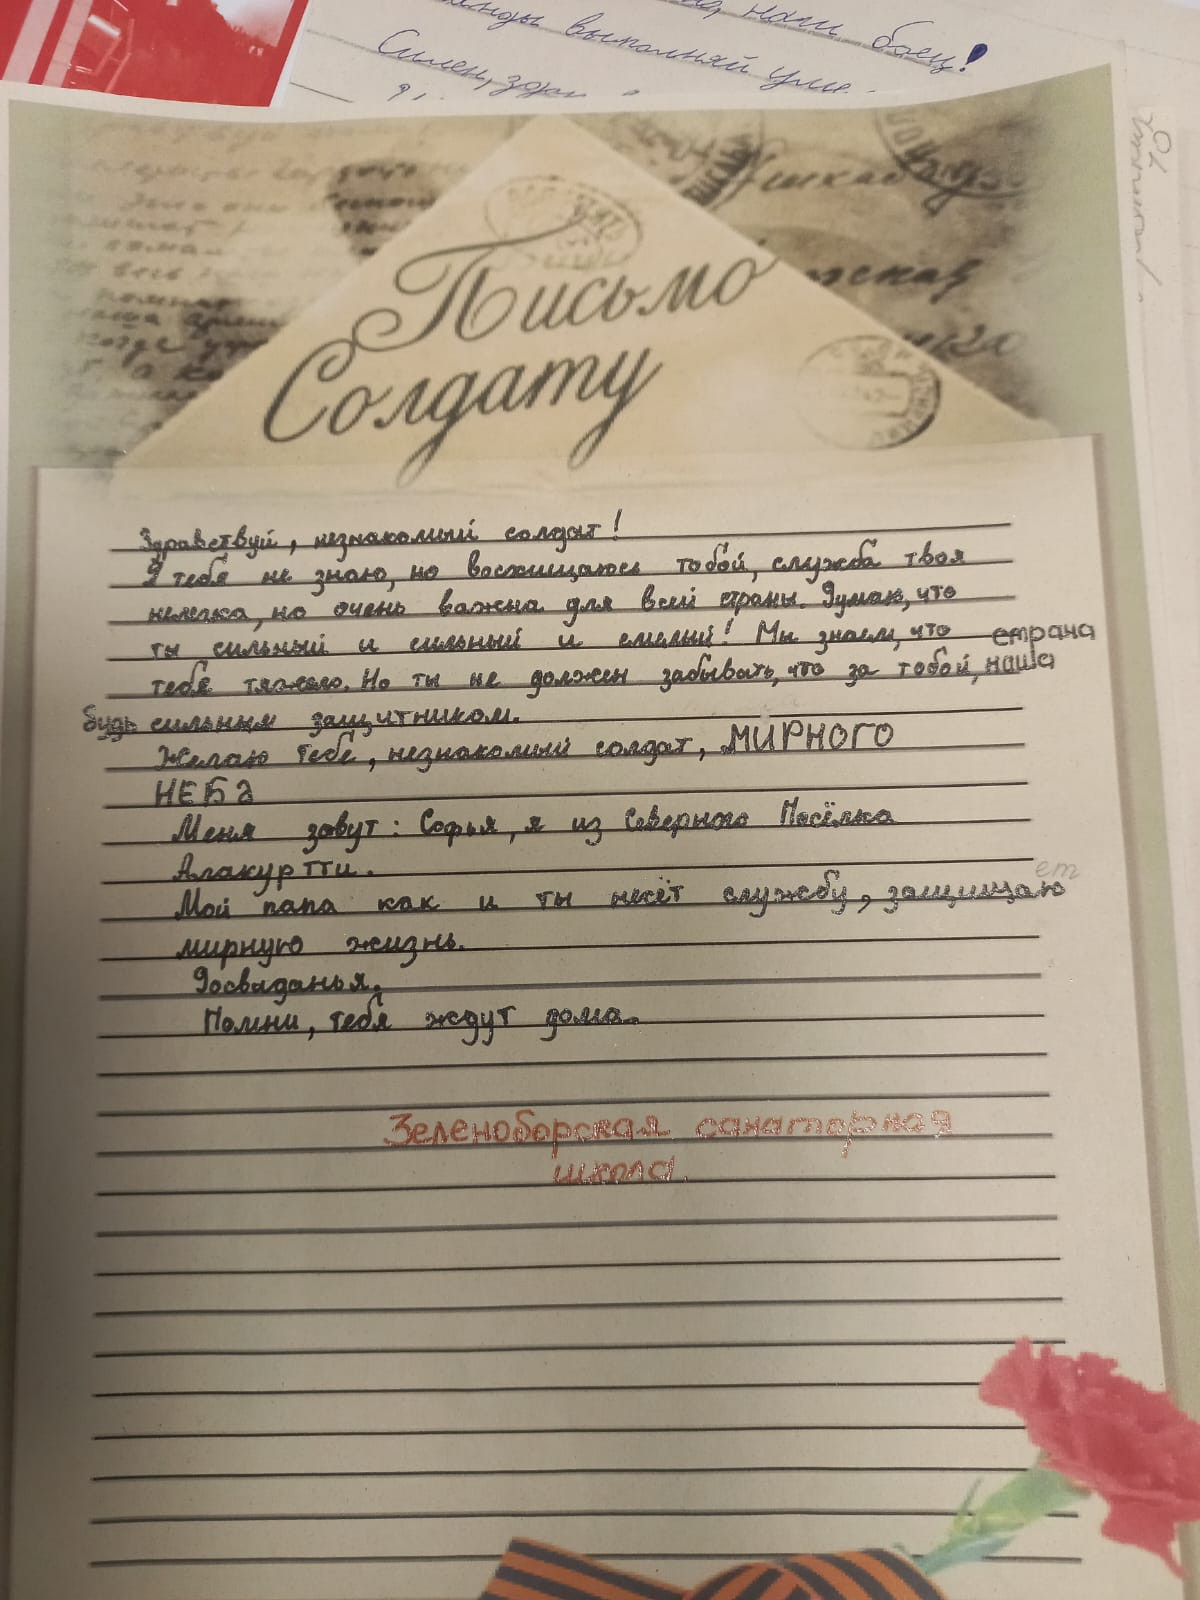 наш боец!
выполняй
Письмо
Солдату
Здравствуй, незнакомый солдат!
Я тебя не знаю, но восхищаюсь тобой, служба твоя
нелегка, но очень важна для всей страны. Думаю, что
ты сильный и сильный и смелый! Мы знаем, что страна
тебе тяжело. Но ты не должен забывать, что за тобой, наша
будь сильным защитником.
Желаю тебе, незнакомый солдат, МИРНОГО
НЕБА
Меня завут: Софья, я из Северного Посёлка
Алакуртти.
ет
Мой папа как и ты несёт службу, защищаю
мирную жизнь.
Досвиданья.
Помни, тебя ждут дома.
Зеленоборская санаторная
школа.